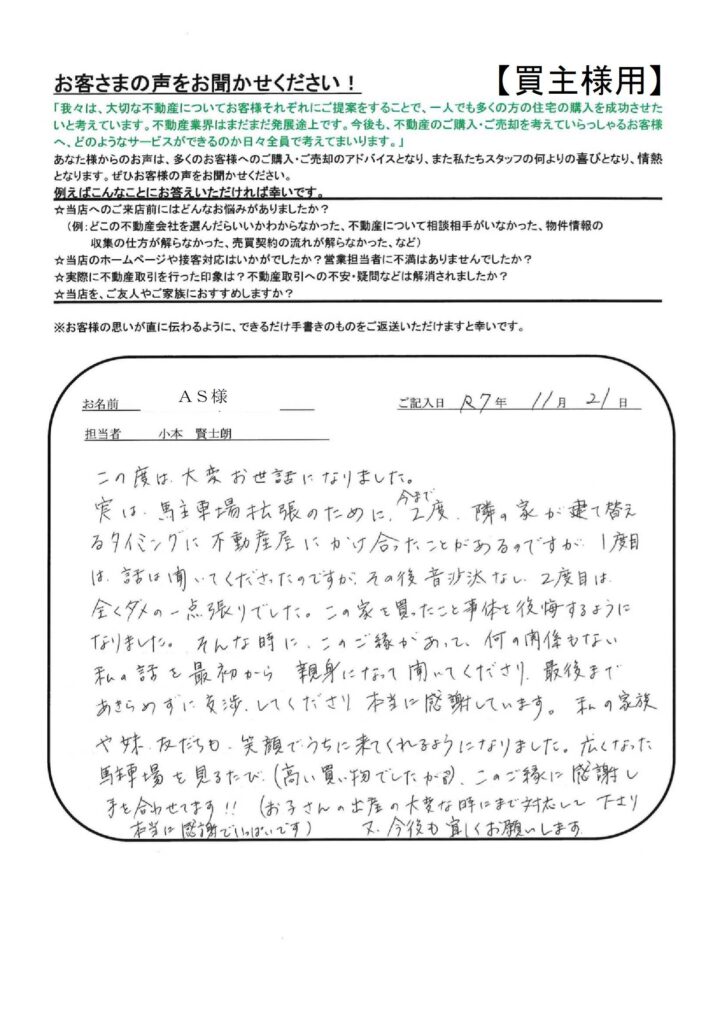 お客さまの声をお聞かせください！
【買主様用】
「我々は、大切な不動産についてお客様それぞれにご提案をすることで、一人でも多くの方の住宅の購入を成功させた
いと考えています。不動産業界はまだまだ発展途上です。今後も、不動産のご購入・ご売却を考えていらっしゃるお客様
へ、どのようなサービスができるのか日々全員で考えてまいります。」
あなた様からのお声は、多くのお客様へのご購入・ご売却のアドバイスとなり、また私たちスタッフの何よりの喜びとなり、情熱
となります。ぜひお客様の声をお聞かせください。
例えばこんなことにお答えいただければ幸いです。
☆当店へのご来店前にはどんなお悩みがありましたか？
（例：どこの不動産会社を選んだらいいかわからなかった、不動産について相談相手がいなかった、物件情報の
収集の仕方が解らなかった、売買契約の流れが解らなかった、など）
☆当店のホームページや接客対応はいかがでしたか？営業担当者に不満はありませんでしたか？
☆実際に不動産取引を行った印象は？不動産取引への不安・疑問などは解消されましたか？
☆当店を、ご友人やご家族におすすめしますか？
※お客様の思いが直に伝わるように、できるだけ手書きのものをご返送いただけますと幸いです。
お名前 AS様
ご記入日 R7年 11月 21日
担当者 小本 賢士朗
この度は、大変お世話になりました。
実は、駐車場拡張のために、今まで2度、隣の家が建て替え
るタイミングに不動産屋にかけ合ったことがあるのですが、1度目
は、話は聞いてくださったのですが、その後音沙汰なし、2度目は、
全くダメの一点張りでした。この家を買ったこと事体を後悔するように
なりました。そんな時に、このご縁があって、何の関係もない
私の話を最初から 親身になって聞いてくださり、最後まで
あきらめずに交渉してくださり 本当に感謝しています。私の家族
や妹、友だちも、笑顔でうちに来てくれるようになりました。広くなった
駐車場を見るたび、(高い買い物でしたが)、このご縁に感謝し
手を合わせてます!! (お子さんの出産の大変な時にまで対応して下さり
本当に感謝でいっぱいです) 又、今後も宜しくお願いします。